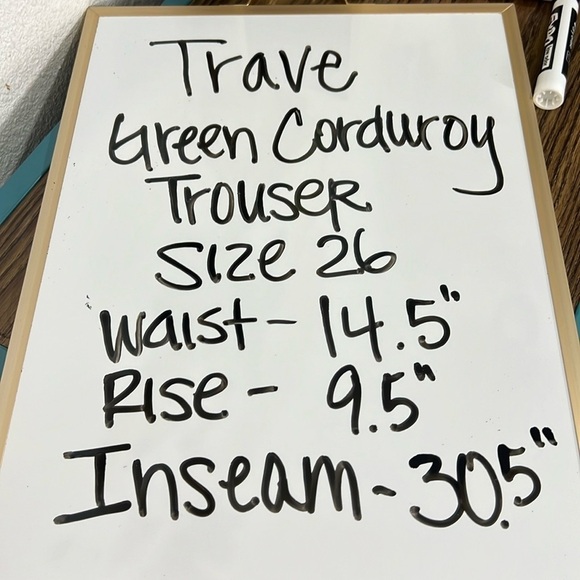 Trave
Green Corduroy
Trouser
Size 26
Waist - 14.5"
Rise - 9.5"
Inseam - 30.5"